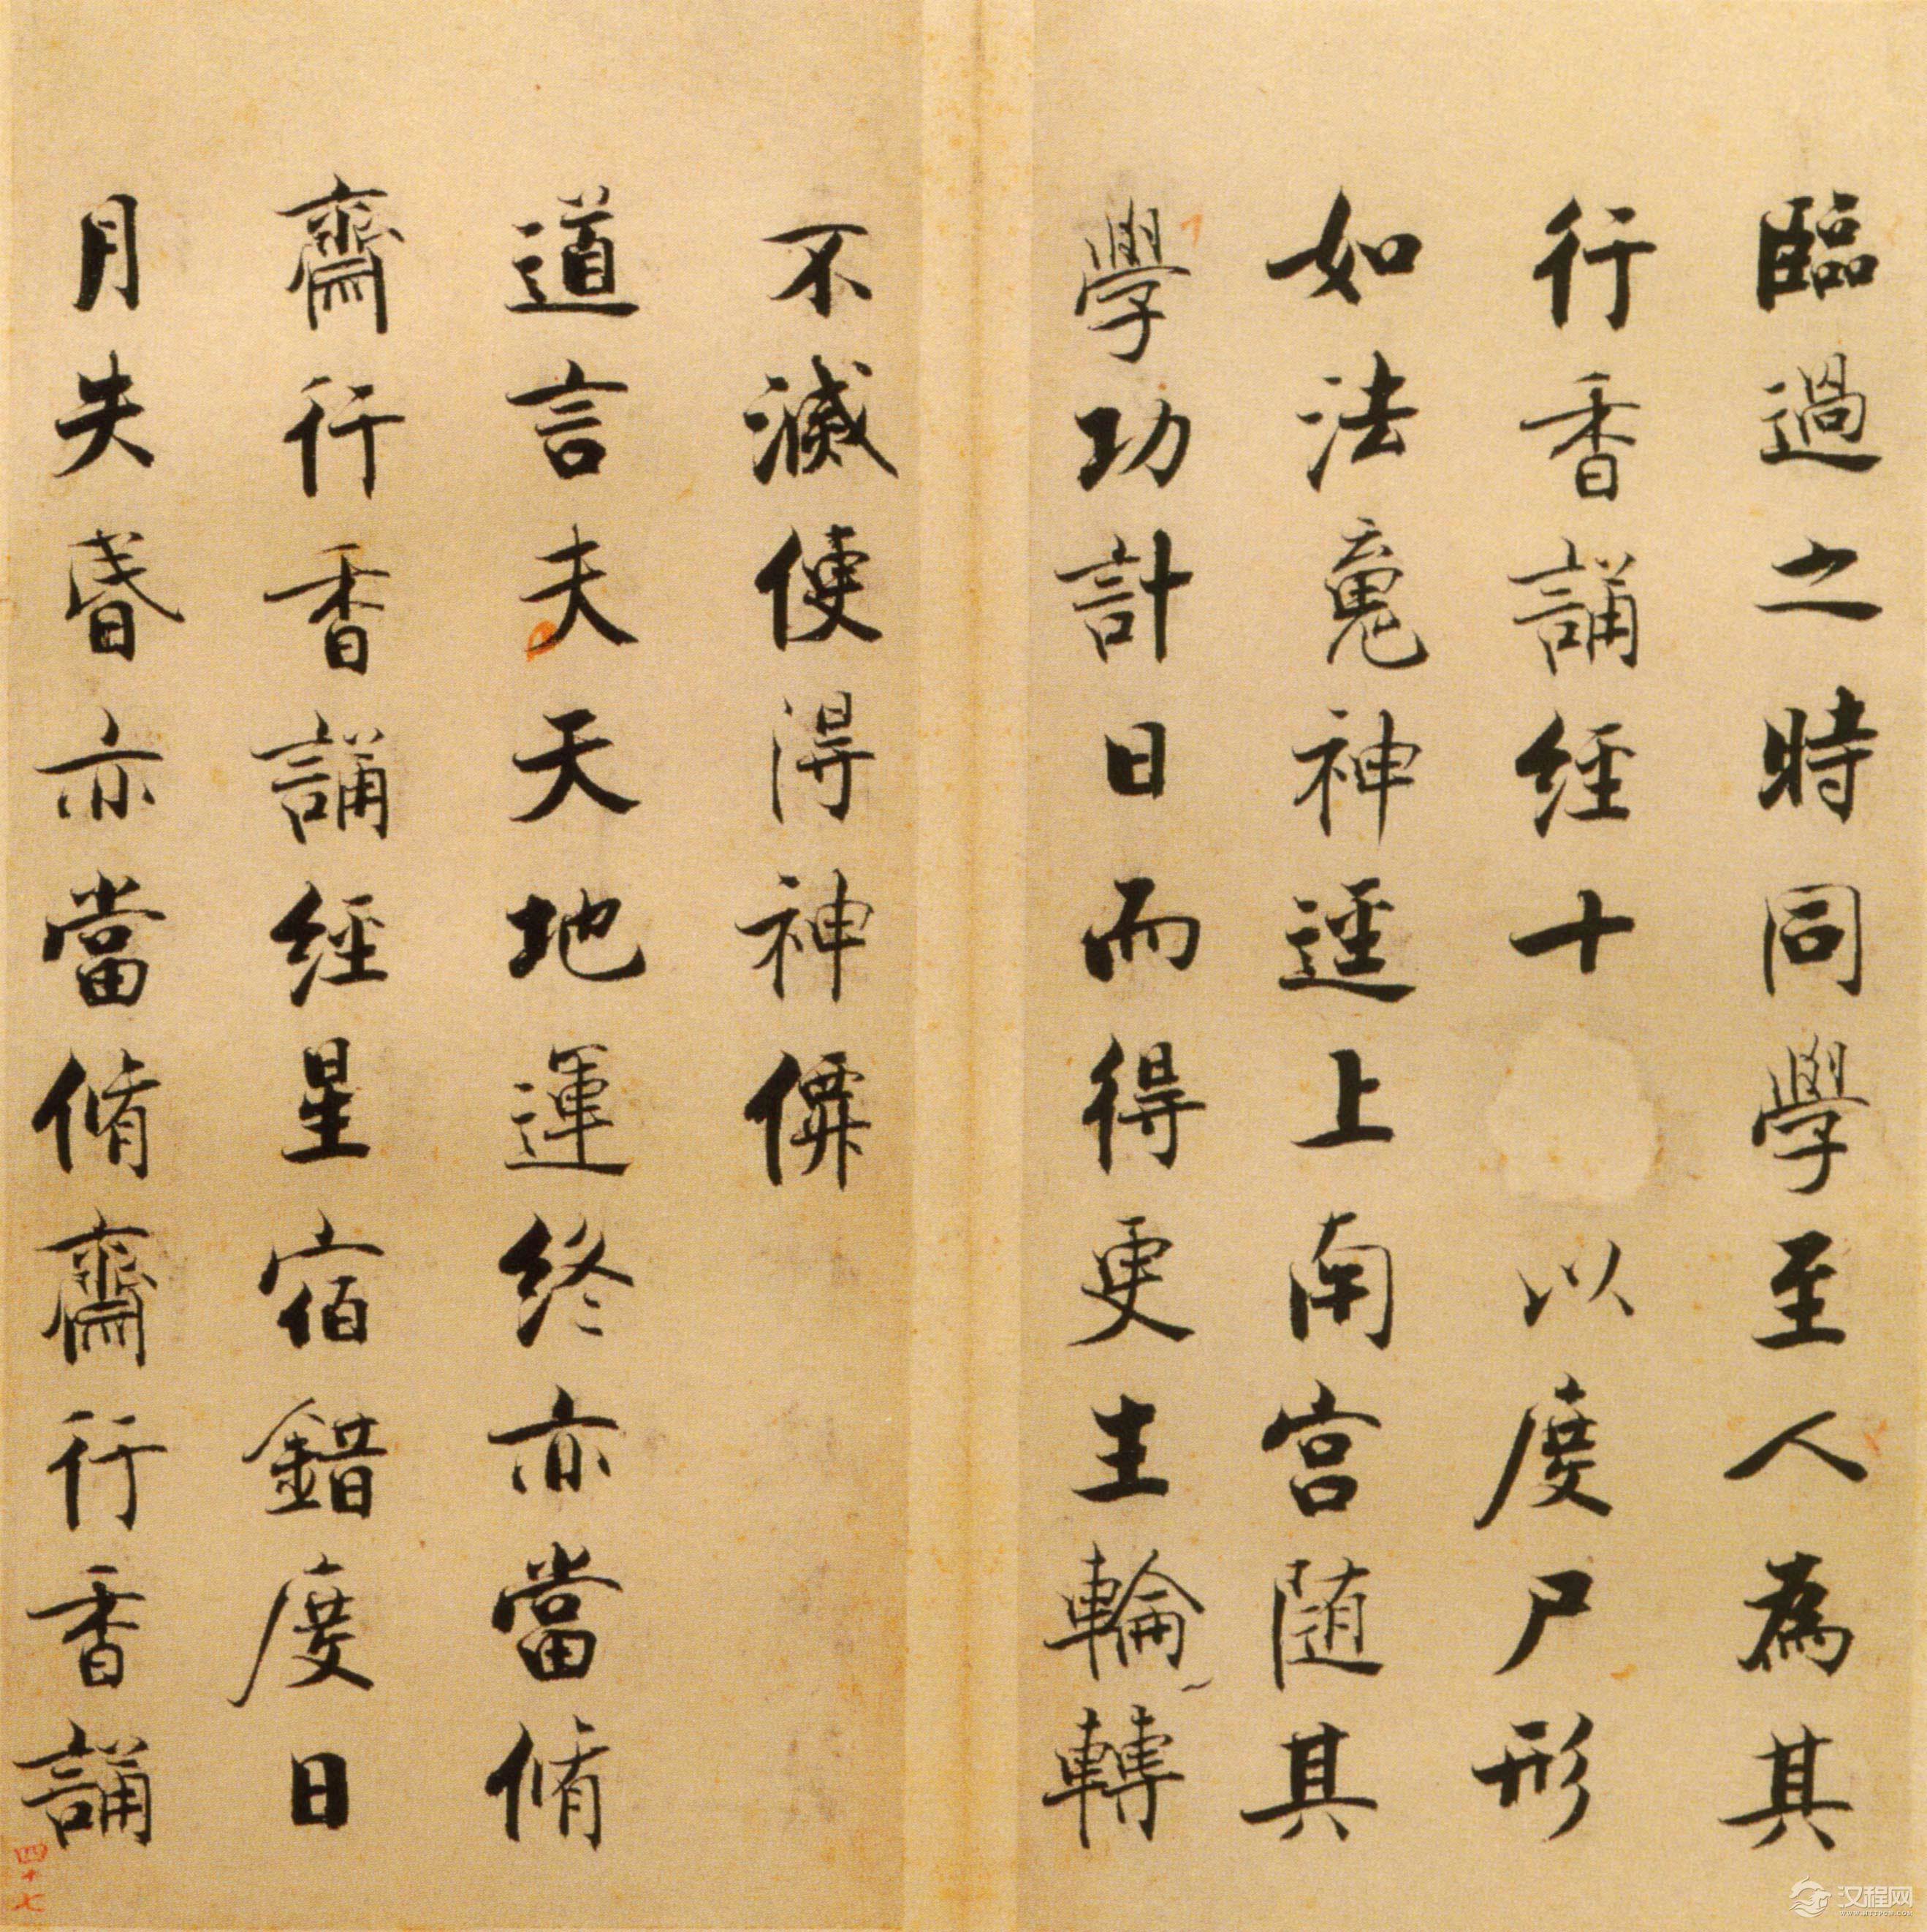 臨過之時同學至人為其
行香誦經十以度尸形
如法魂神逕上南宮随其
學功計日而得更生輪轉
不滅便得神僊
道言夫天地運終亦當脩
齋行香誦經星宿錯度日
月失昬亦當脩齋行香誦
四十七
汉程网
WWW.HTTPCN.COM